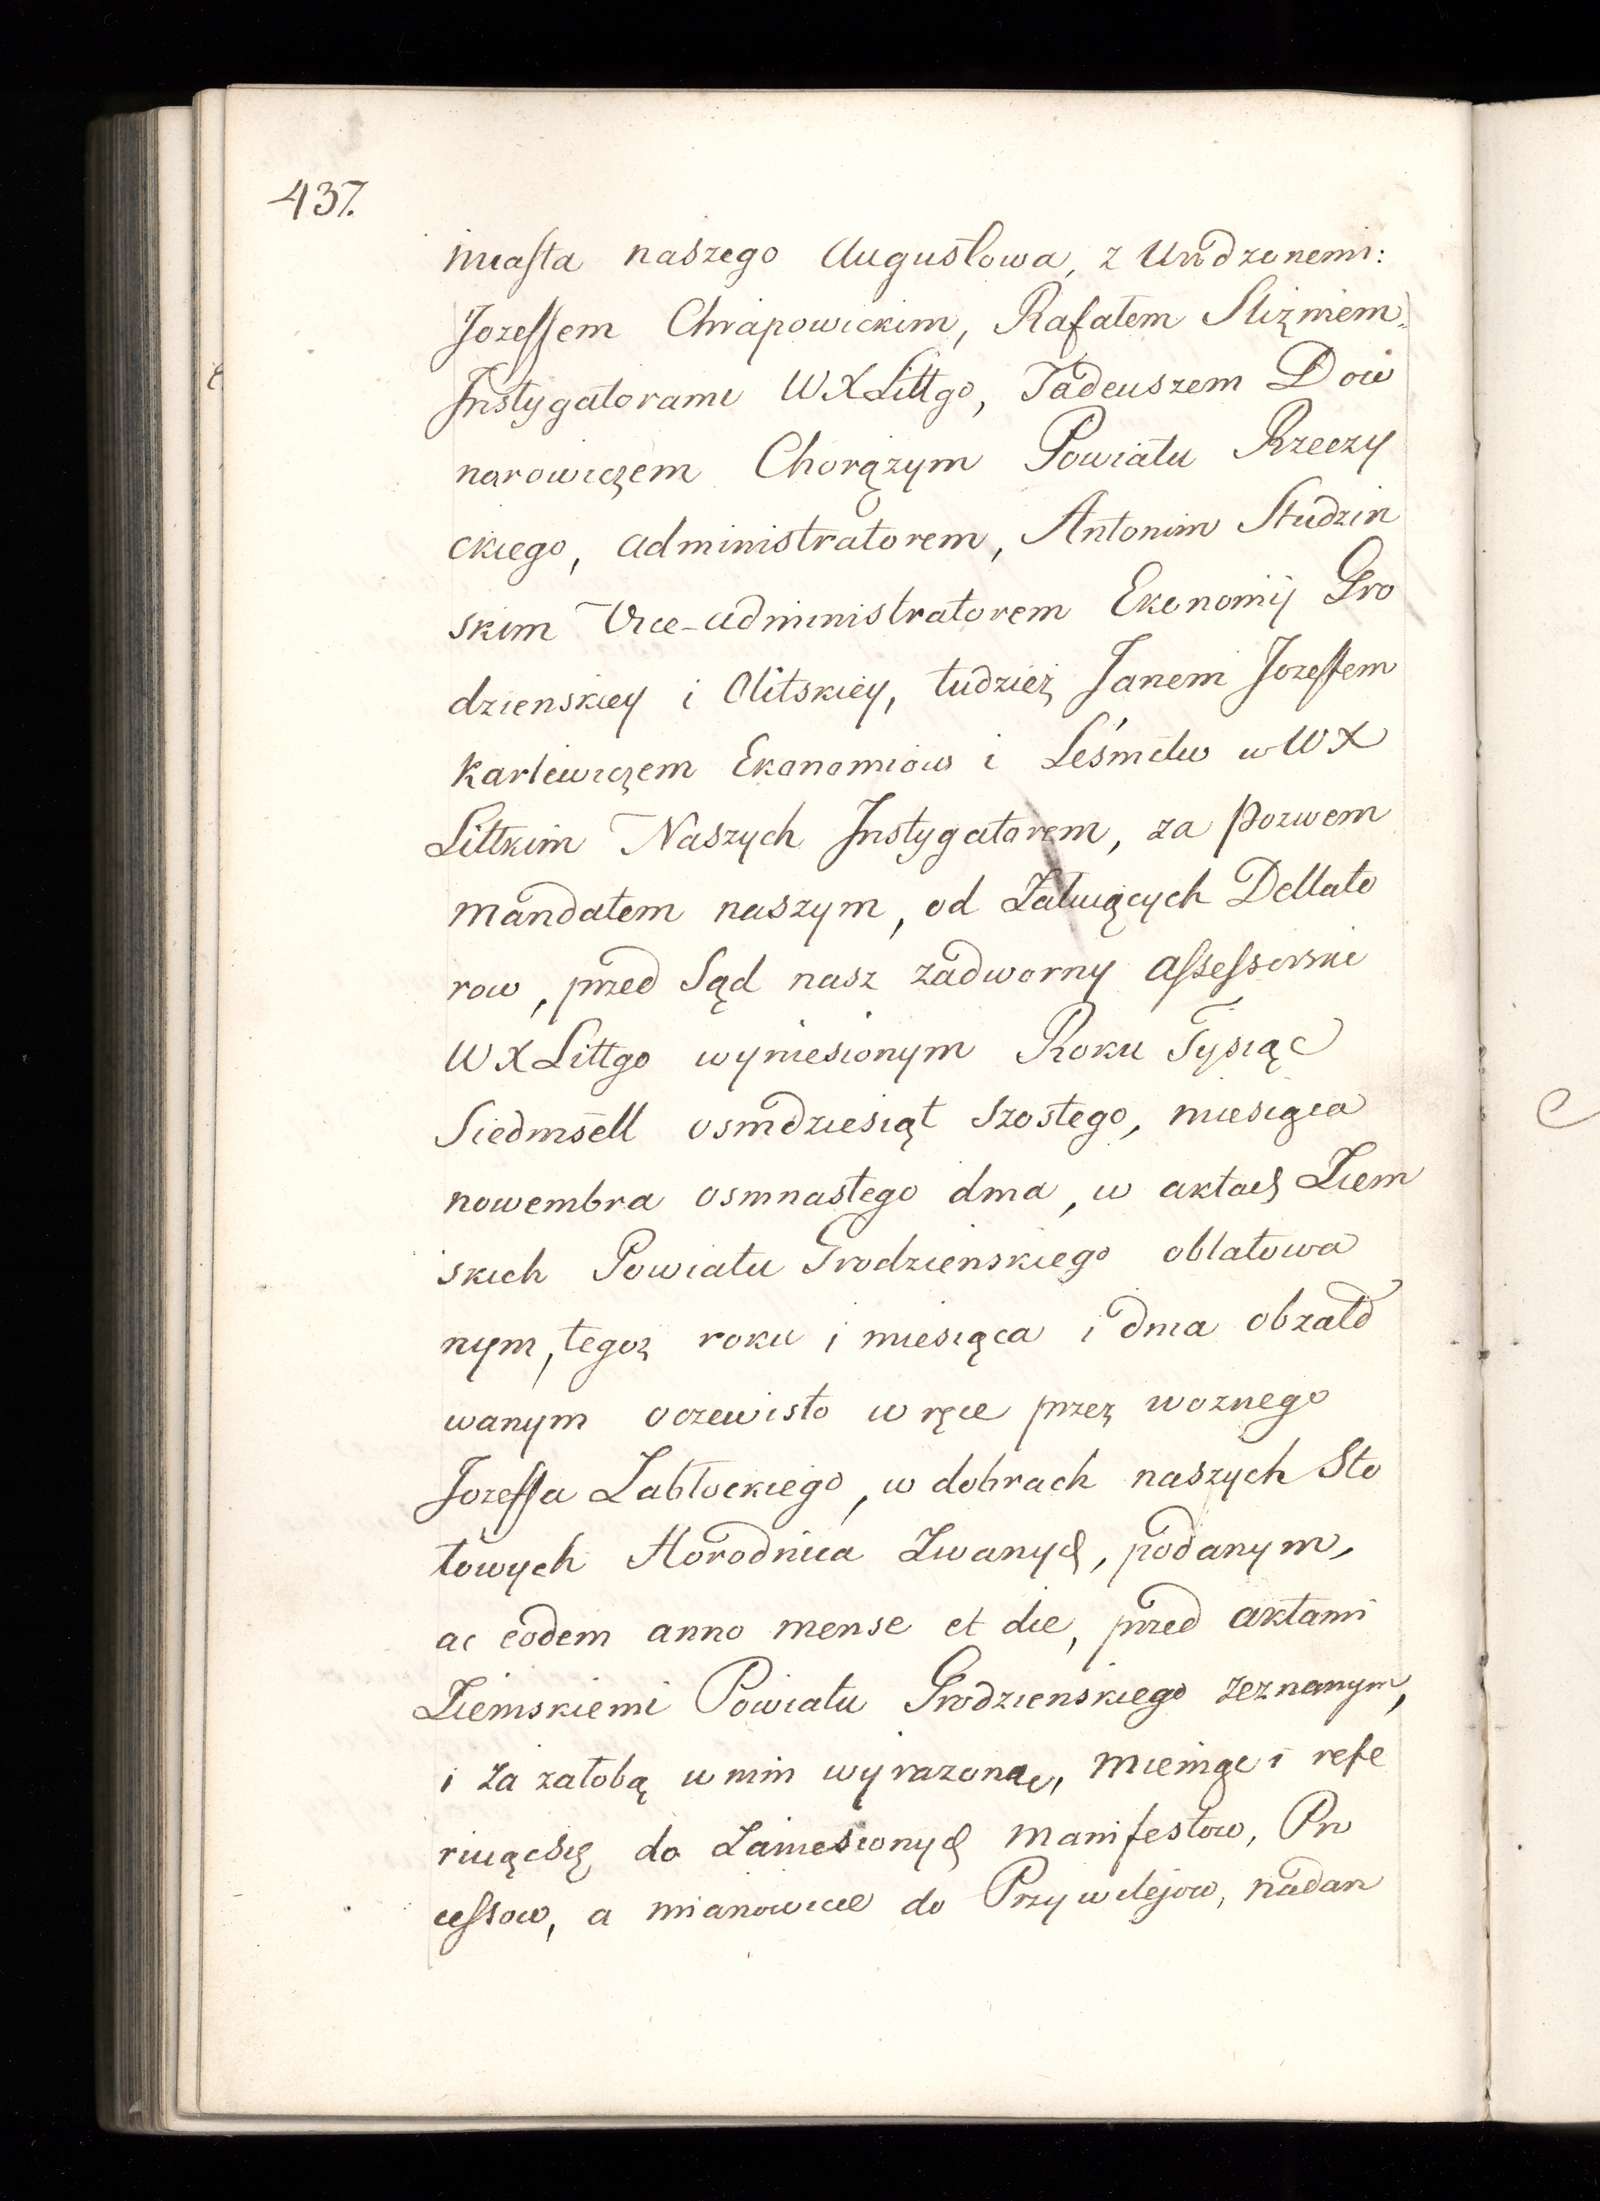 437.
miasta naszego Augustowa, z Urodzonemi:
Jozeffem Chrapowickim, Rafałem Slizniem
Instygatorami WX Littgo, Tadeuszem Dow
narowiczem Chorązym Powiatu Rzeczy
ckiego, administratorem, Antonim Studzin
skim Vice-administratorem Ekonomij Gro
dzienskiey i Olitskiey, tudziez Janem Jozeffem
Karlewiczem Ekonomiow i Leśnictw w WX
Littkim Naszych Instygatorem, za pozwem
mandatem naszym, od Załuiących Dellato
row, przed Sąd nasz zadworny assessorski
WX Littgo wyniesionym Roku Tysiąc
Siedmsett osmdziesiąt szostego, miesiąca
nowembra osmnastego dnia, w aktach Ziem
skich Powiatu Grodzienskiego oblatowa
nym, tegoz roku i miesiąca i dnia obzało
wanym oczewisto w ręce przez woznego
Jozeffa Zabłockiego, w dobrach naszych Sto
łowych Horodnica Zwanych, podanym,
ac eodem anno mense et die, przed aktami
Ziemskiemi Powiatu Grodzienskiego zeznanym,
i za załobą w nim wyrazoną, mieniąc i refe
riuiącsię do Zaniesionych manifestow, Pro
cessow, a mianowicie do Przywilejow, nadan